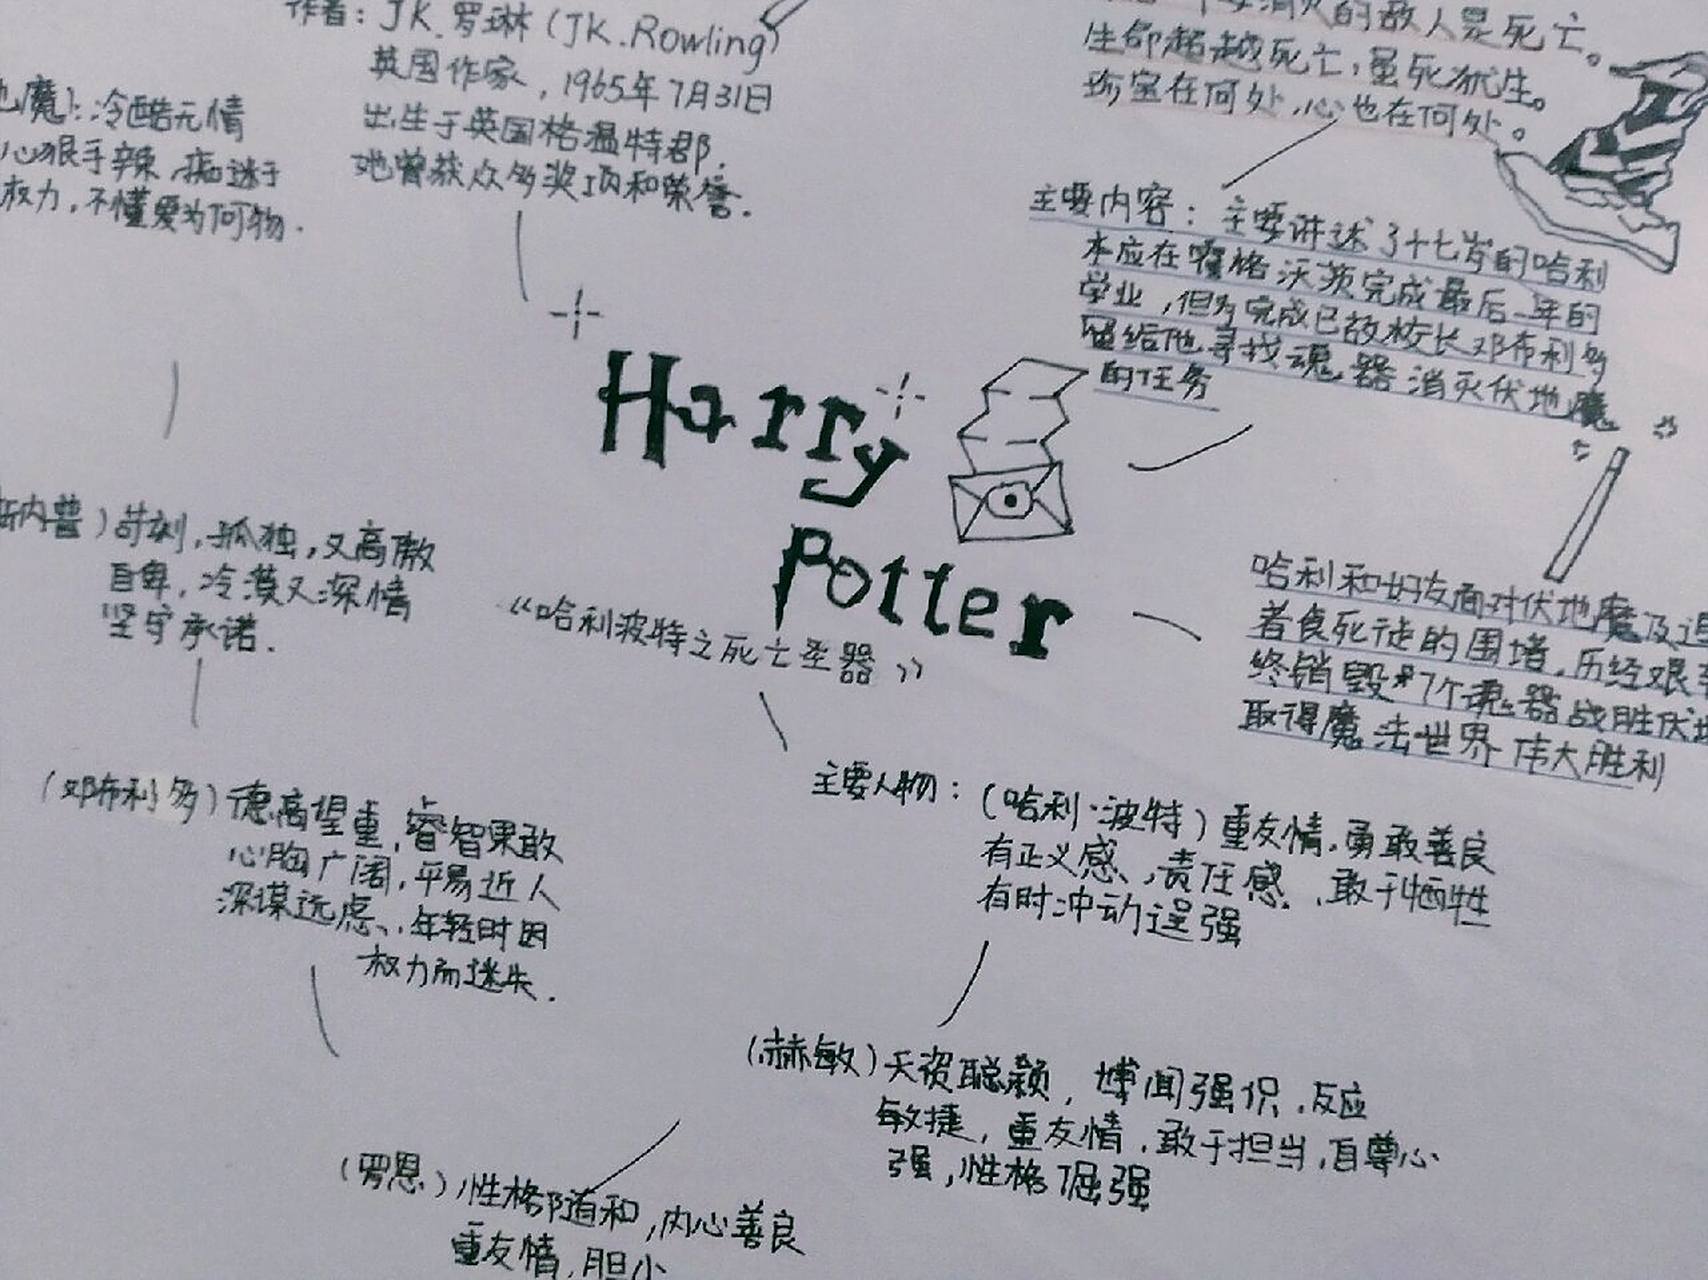 作者：J.K.罗琳（J.K.Rowling）
英国作家，1965年7月31日
出生于英国格温特郡.
她曾获众多奖项和荣誉.
要消灭的敌人是死亡。
生命超越死亡,虽死犹生。
珍宝在何处,心也在何处。
主要内容：主要讲述了十七岁的哈利
本应在霍格沃茨完成最后一年的
学业,但为完成已故校长邓布利多
留给他寻找魂器消灭伏地魔
的任务
哈利和好友面对伏地魔及追
者食死徒的围堵,历经艰
终销毁7个魂器战胜伏地
取得魔法世界伟大胜利
Harry
Potter
《哈利波特之死亡圣器》
主要人物：(哈利·波特)重友情,勇敢善良
有正义感,责任感,敢于牺牲
有时冲动逞强
(赫敏)天资聪颖,博闻强识,反应
敏捷,重友情,敢于担当,自尊心
强,性格倔强
(罗恩)性格随和,内心善良
重友情,胆小
(邓布利多)德高望重,睿智果敢
心胸广阔,平易近人
深谋远虑,年轻时因
权力而迷失.
斯内普)苛刻,孤独,又高傲
自卑,冷漠又深情
坚守承诺.
地魔):冷酷无情
心狠手辣,痴迷于
权力,不懂爱为何物.